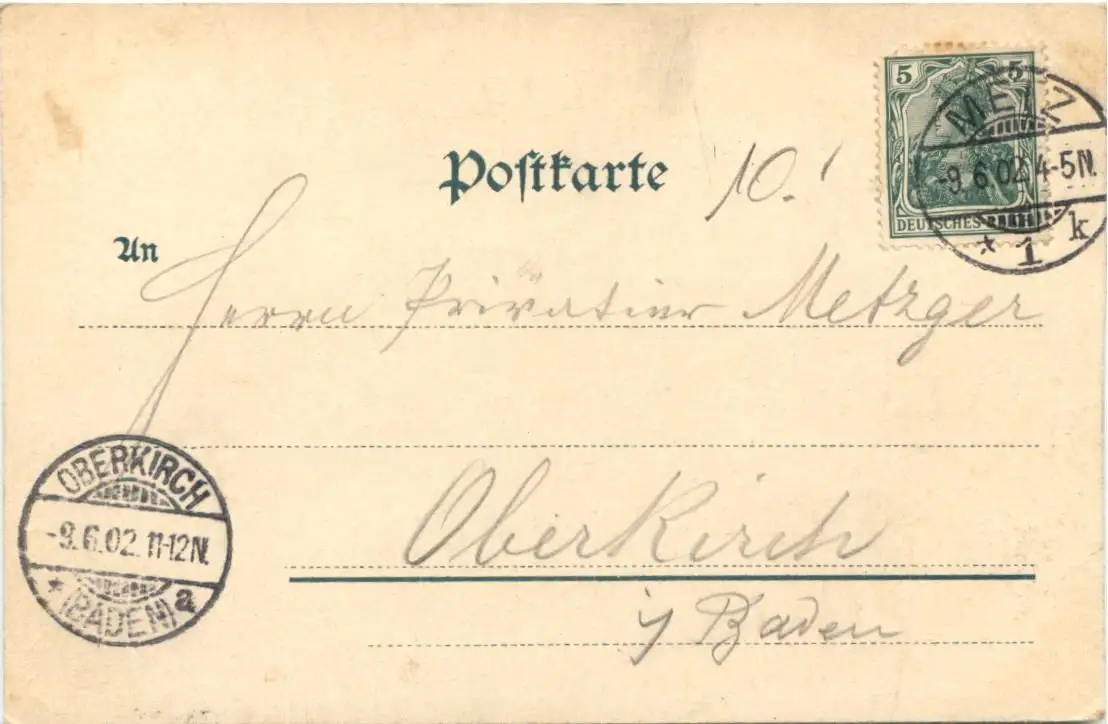 5 5
DEUTSCHES
METZ
-9.6.02.4-5N.
* 1 k
Postkarte
10.!
An
Herrn Privatier Metzger
OBERKIRCH
-9.6.02.11-12N.
* (BADEN) a
Oberkirch
i/ Baden